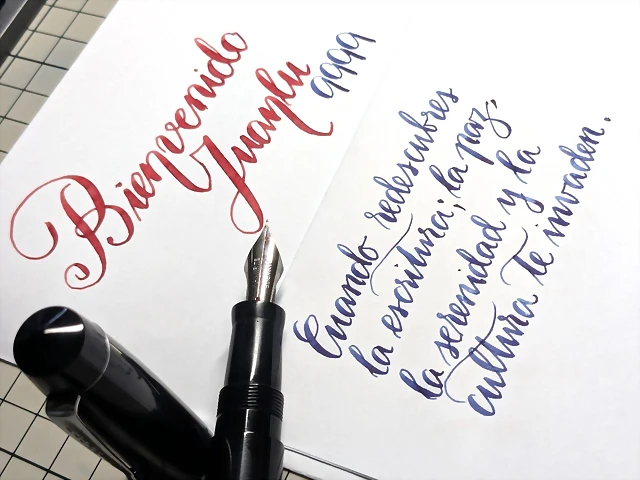 Bienvenido
Juanlu
9999
Cuando redescubres
la escritura; la paz,
la serenidad y la
cultura te invaden.